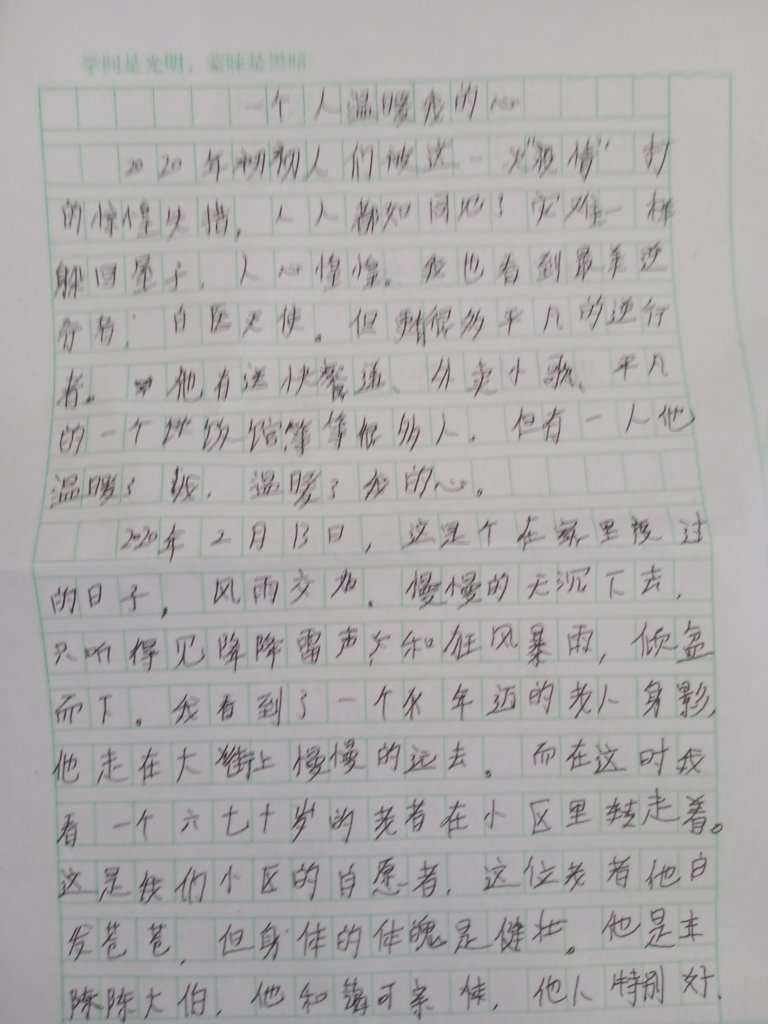 学问是光明，蒙昧是黑暗
一个人温暖我的心
2020年初初人们被这一火“疫情”打
的惊惶失措，人人都如同地了灾难一样
躲回屋子，人心惶惶。我也看到最美逆
行者：白医天使。但有很多平凡的逆行
者。他有送快餐递、外卖小歌、平凡
的一个饮饭馆等等很多人。但有一人他
温暖了我，温暖了我的心。
2020年2月13日，这是个在家里度过
的日子，风雨交加，慢慢的天沉下去，
只听得见降降雷声和狂风暴雨，倾盆
而下。我看到了一个年迈的老人身影，
他走在大街上慢慢的远去。而在这时我
看一个六七十岁的老者在小区里转走着。
这是我们小区的自愿者，这位老者他白
发苍苍，但身体的体魄是健壮。他是
陈陈大伯，他和蔼可亲，他人特别好，